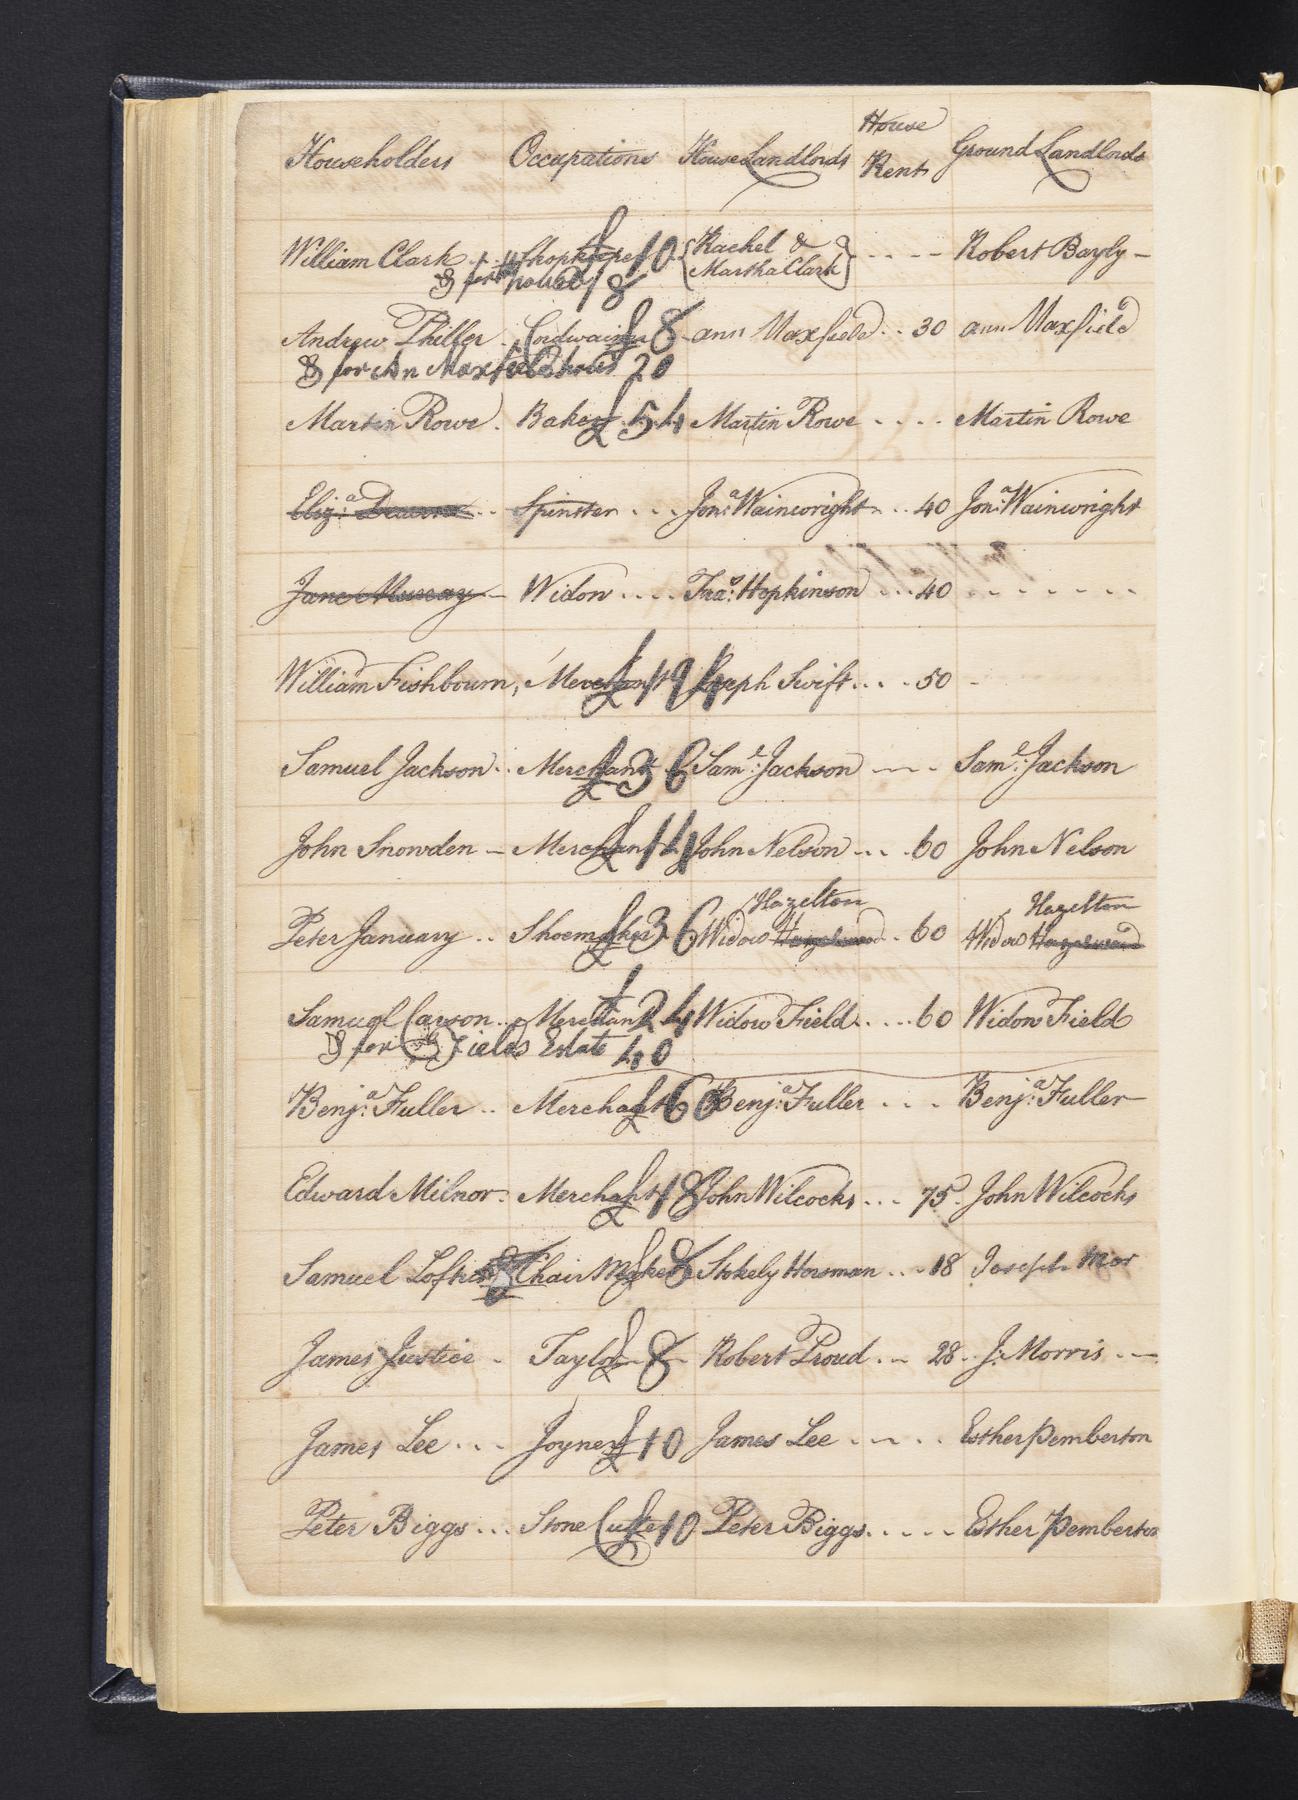 Householders Occupations House Landlords House Rent Ground Landlords
William Clark Shopkeeper £10 {Rachel & Martha Clark} - - - - Robert Bayly -
& for house 18
Andrew Philler . Cordwainer £8 ann Maxfield . . 30 ann Maxfield
& for An Maxfield hous 20
Martin Rowe . Baker £54 Martin Rowe . . . . Martin Rowe
Eliz:a . . Spinster . . . Jon:a Wainwright . . 40 Jon:a Wainwright
Jane Murray - Widow . . . . Fra:s Hopkinson . . . 40 . . . . . . .
William Fishbourn, Merchant £194 Joseph Swift . . . . 50 -
Samuel Jackson . . Merchant £36 Sam:l Jackson - - - Sam:l Jackson
John Snowden - Merchant £14 John Nelson . . . 60 John Nelson
Hazelton Hazelton
Peter January . . Shoemaker £36 Widow Hazelwood . 60 Widow Hazelwood
Samuel Carson . . Merchant £24 Widow Field . . . . . 60 Widow Field
& for Fields Estate 40
Benj:a Fuller . . Merchant £60 Benj:a Fuller . . . Benj:a Fuller
Edward Milnor . Merchant £18 John Wilcocks . . . 75 . John Wilcocks
Samuel Chair Maker £8 Stokely Hosman . . . 18 Joseph Mor
James Justice . Taylor £8 Robert Proud . . . 28 . J: Morris . -
James Lee . . . Joyner £10 James Lee . . . . . Esther Pemberton
Peter Biggs . . . Stone Cutter £10 Peter Biggs . . . . . Esther Pemberton